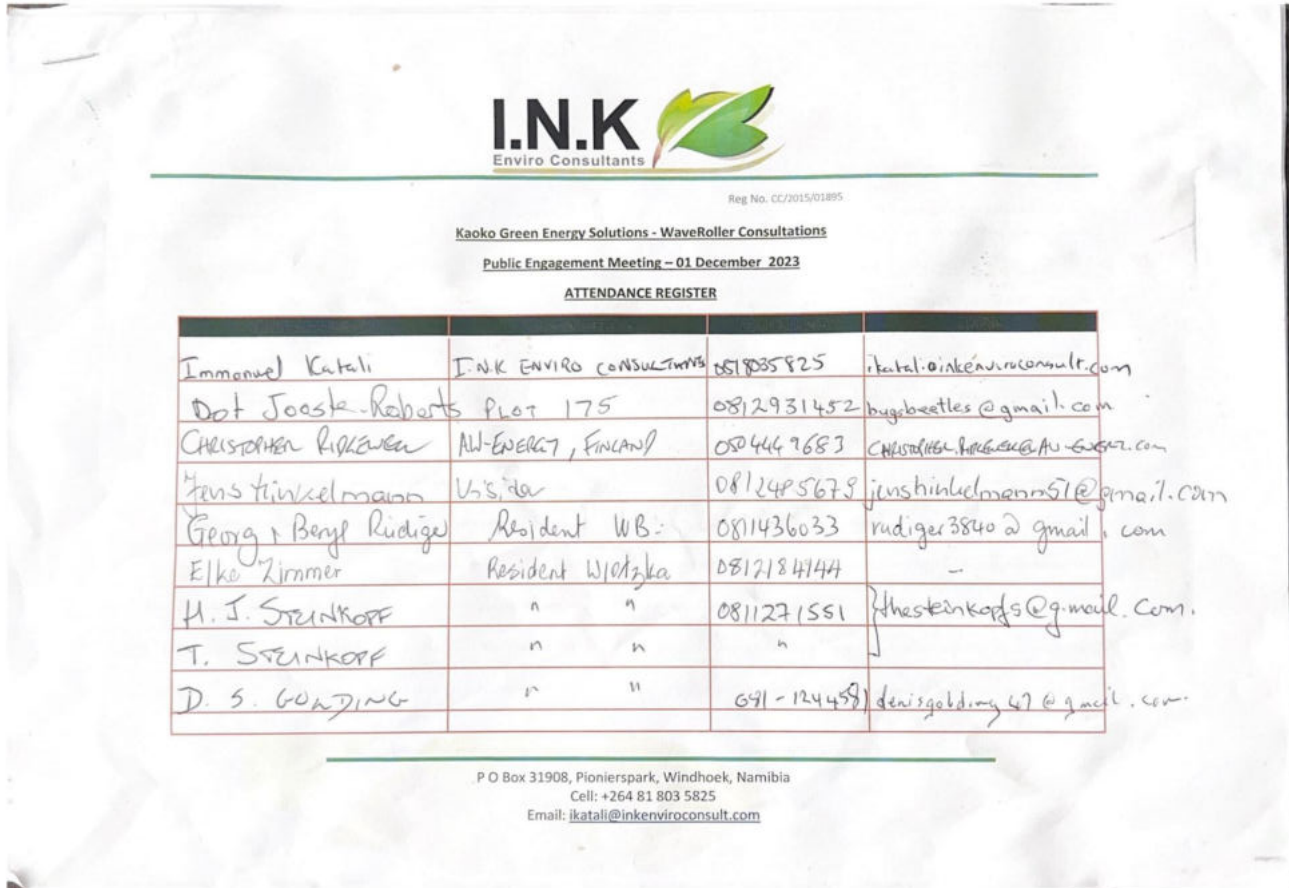 I.N.K
Enviro Consultants
Reg No. CC/2015/01895
Kaoko Green Energy Solutions - WaveRoller Consultations
Public Engagement Meeting – 01 December 2023
ATTENDANCE REGISTER
Immanuel Katali I.N.K ENVIRO CONSULTANTS 0818035825 ikatali@inkenviroconsult.com
Dot Jooste-Roberts PLOT 175 0812931452 bugsbeetles@gmail.com
CHRISTOPHER RIDGEWELL AW-ENERGY, FINLAND 0504449683
Jens Hinkelmann 0812485679 jenshinkelmann51@gmail.com
Georg + Beryl Rüdiger Resident WB: 0811436033 rudiger3840@gmail.com
Elke Zimmer Resident Wlotzka 0812184144 –
H. J. STEINKOPF " " 0811271551 }thesteinkopfs@gmail.com.
T. STEINKOPF " " "
D. S. GOLDING " " denisgolding47@gmail.com.
P O Box 31908, Pionierspark, Windhoek, Namibia
Cell: +264 81 803 5825
Email: ikatali@inkenviroconsult.com